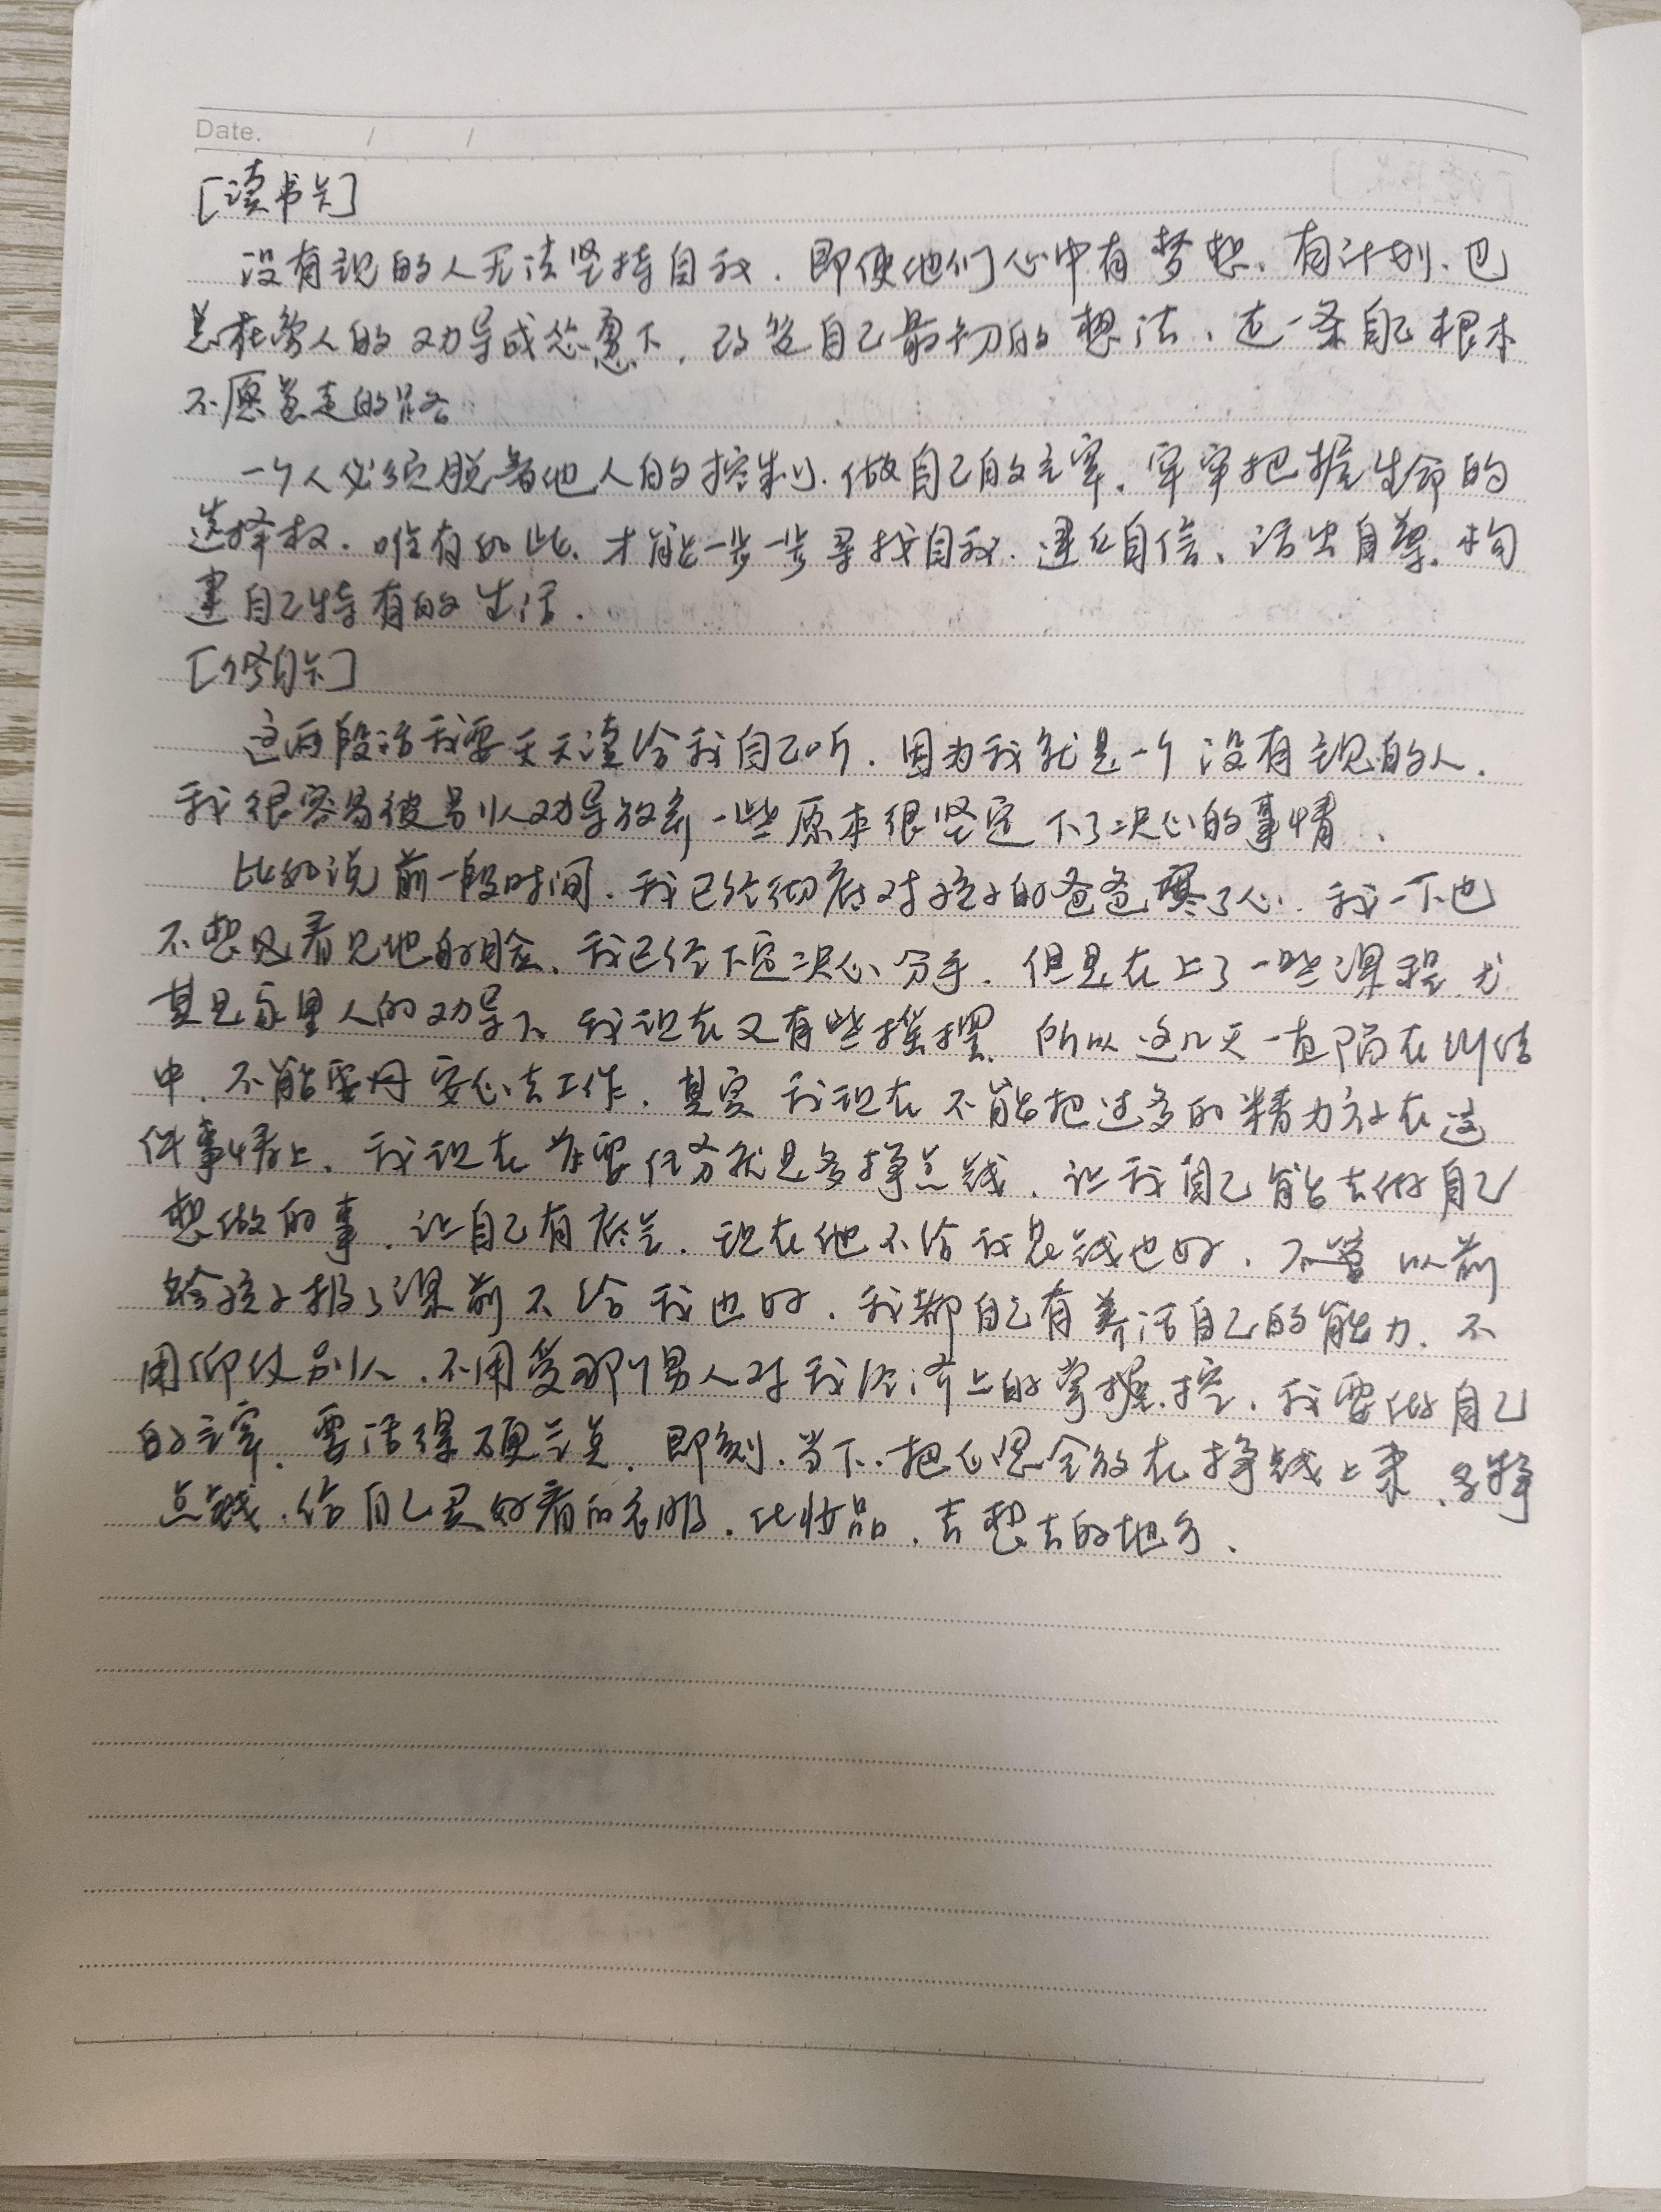 Date. / /
[读书卡]
没有主见的人无法坚持自我. 即使他们心中有梦想、有计划、也
总在旁人的劝导或怂恿下, 改变自己最初的想法、走一条自己根本
不愿意走的路
一个人必须脱离他人的控制. 做自己的主宰. 牢牢把握生命的
选择权. 唯有如此. 才能一步一步寻找自我. 建立自信、活出自尊. 构
建自己特有的生活.
[修自卡]
这两段话我要天天读给我自己听. 因为我就是一个没有主见的人.
我很容易被别人劝导放弃一些原本很坚定下了决心的事情、
比如说前一段时间. 我已经彻底对孩子的爸爸寒了心. 我一下也
不想见看见他的脸、我已经下定决心分手. 但是在上了一些课程 尤
其是家里人的劝导下 我现在又有些摇摆. 所以这几天一直陷在纠结
中. 不能安心去工作. 其实我现在不能把过多的精力放在这
件事情上. 我现在首要任务就是多挣点钱. 让我自己能去做自己
想做的事. 让自己有底气. 现在他不给我钱也好. 不管以前
给孩子报了课前不给我也好. 我都自己有养活自己的能力. 不
用仰仗别人. 不用受那个男人对我经济上的掌握.控. 我要做自己
的主宰. 要活得硬气点. 即刻.当下.把心思全放在挣钱上来. 多挣
点钱. 给自己买好看的衣服. 化妆品. 去想去的地方.